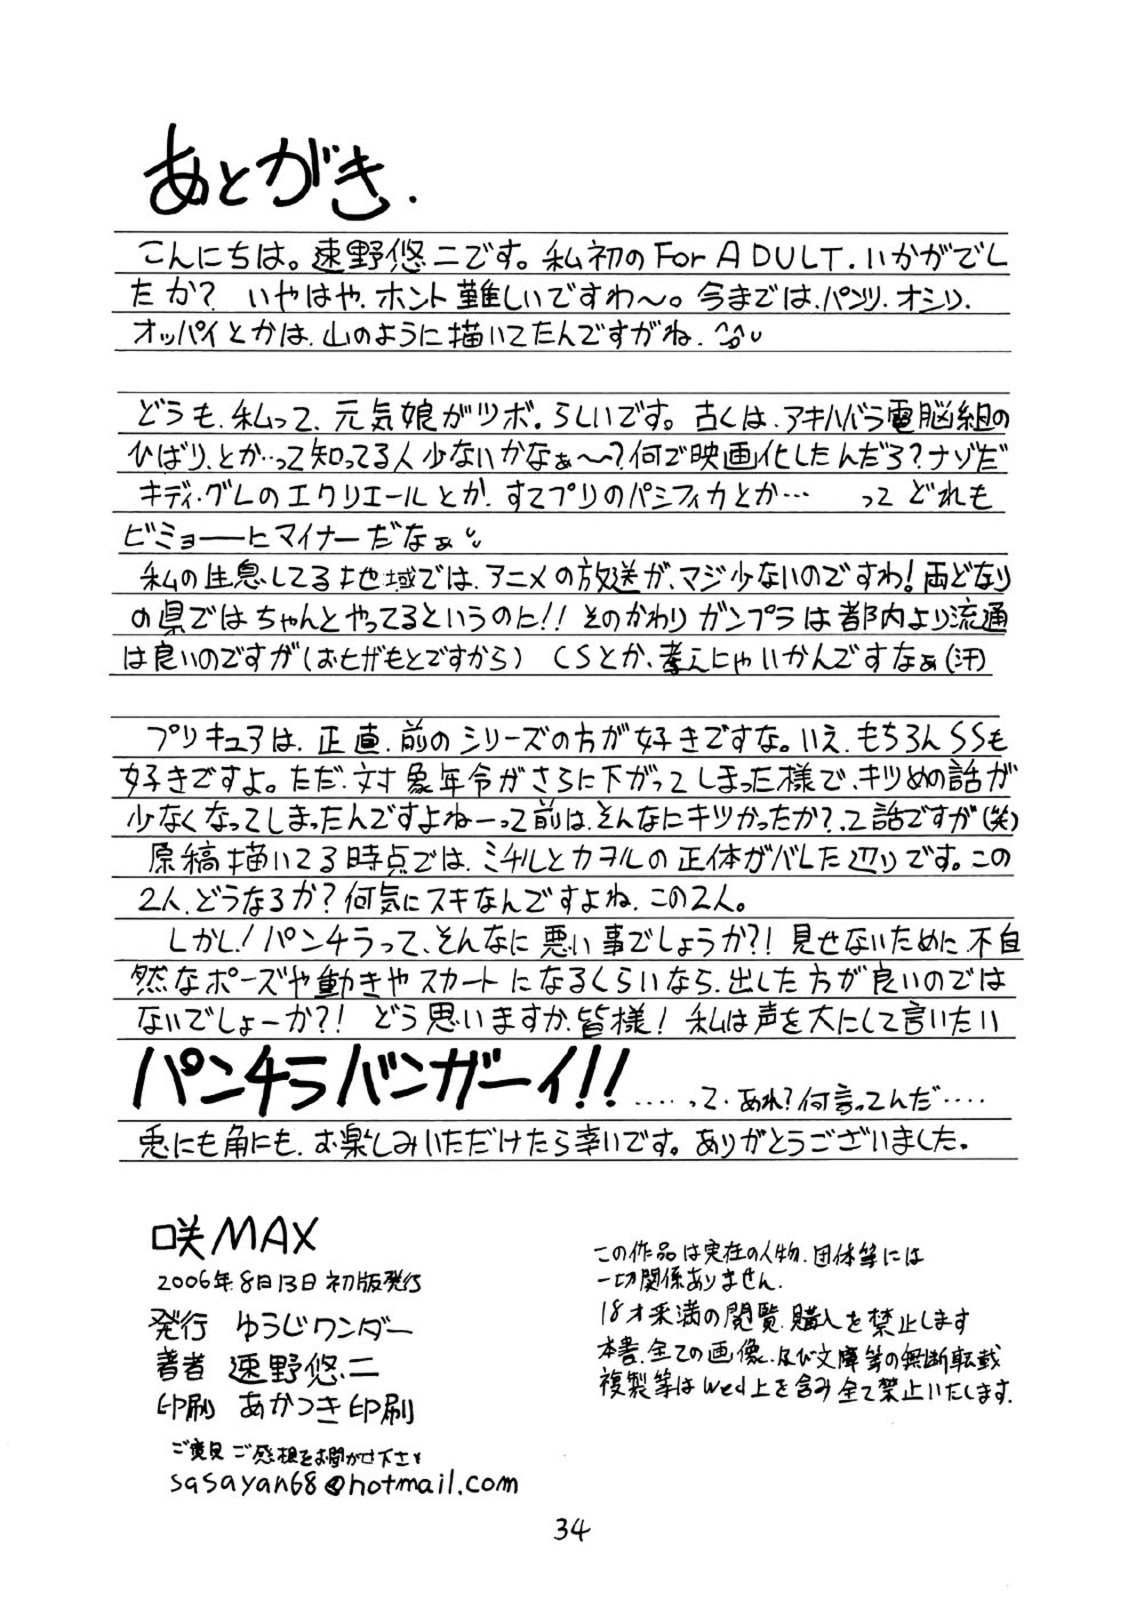 あとがき.
こんにちは。速野悠二です。私初のFor ADULT.いかがでし
たか? いやはや、ホント難しいですわ〜。今まではパンツ、オシリ、
オッパイとかは、山のように描いてたんですがね、^^;
どうも、私って、元気娘がツボ。らしいです。古くは、アキハバラ電脳組の
ひばり、とか…って知ってる人少ないかなぁ〜?何で映画化したんだろ?ナゾだ
キディ・グレのエクリエールとか、すてプリのパシフィカとか… って どれも
ビミョーーにマイナーだなぁ
私の生息してる地域では、アニメの放送が、マジ少ないのですわ!両どなり
の県ではちゃんとやってるというのに!! そのかわり ガンプラは都内より流通
は良いのですが(おヒザもとですから) CSとか、考えにゃいかんですなぁ(汗)
プリキュアは、正直、前のシリーズの方が好きですな。いえ、もちろんSSも
好きですよ。ただ、対象年令がさらに下がってしまった様で、キツめの話が
少なくなってしまったんですよねーって前は、そんなにキツかったか?って話ですが(笑)
原稿描いてる時点では、ミチルとカヲルの正体がバレた辺りです。この
2人、どうなるか?何気にスキなんですよね、この2人。
しかし!パンチラって、そんなに悪い事でしょうか?! 見せないために、不自
然なポーズや動きやスカートになるくらいなら、出した方が良いのでは
ないでしょーか?! どう思いますか、皆様! 私は声を大にして言いたい
パンチラバンザーイ!! ……って、あれ?何言ってんだ……
兎にも角にも、お楽しみいただけたら幸いです。ありがとうございました。
咲MAX
2006年8月13日初版発行
発行 ゆうじワンダー
著者 速野悠二
印刷 あかつき印刷
ご意見ご感想をお聞かせ下さい
sasayan68@hotmail.com
この作品は実在の人物、団体等には
一切関係ありません.
18才未満の閲覧、購入を禁止します
本書、全ての画像、及び文庫等の無断転載
複製等はWed上を含み全て禁止いたします.
34